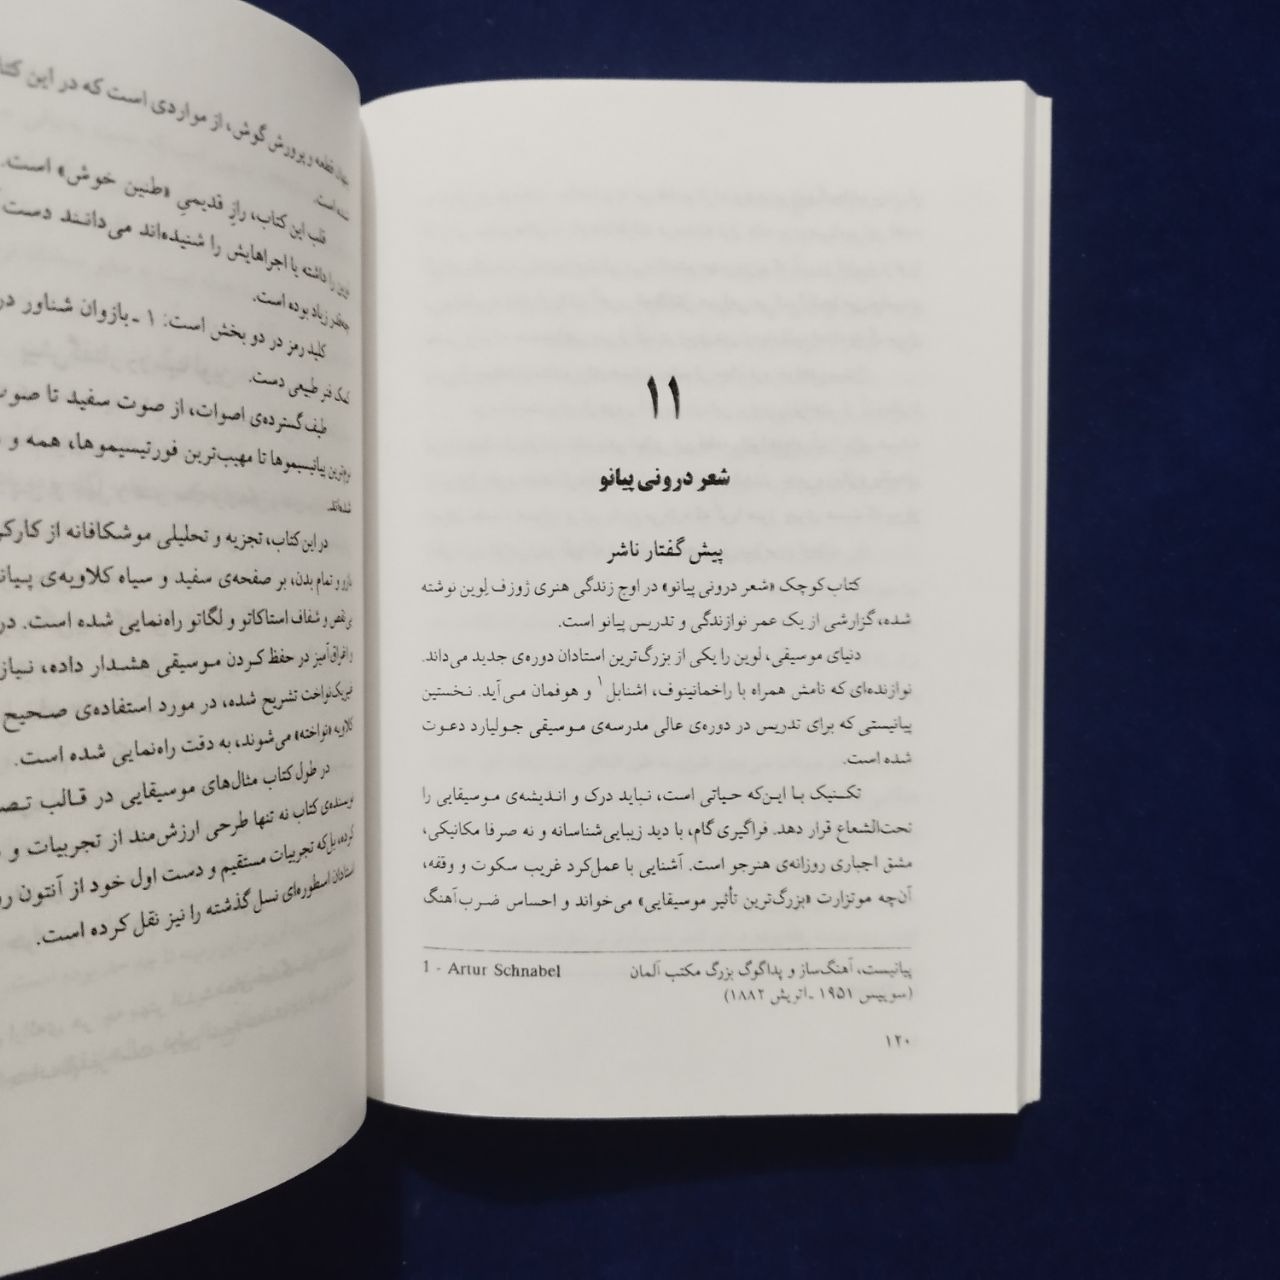 ۱۱
شعر درونی پیانو
پیش گفتار ناشر
کتاب کوچک «شعر درونی پیانو» در اوج زندگی هنری ژوزف لوین نوشته
شده، گزارشی از یک عمر نوازندگی و تدریس پیانو است.
دنیای موسیقی، لوین را یکی از بزرگ‌ترین استادان دوره‌ی جدید می‌داند.
نوازنده‌ای که نامش همراه با راخمانینوف، اشنابل۱ و هوفمان می‌آید. نخستین
پیانیستی که برای تدریس در دوره‌ی عالی مدرسه‌ی موسیقی جولیارد دعوت
شده است.
تکنیک با این‌که حیاتی است، نباید درک و اندیشه‌ی موسیقایی را
تحت‌الشعاع قرار دهد. فراگیری گام، با دید زیبایی‌شناسانه و نه صرفا مکانیکی،
مشق اجباری روزانه‌ی هنرجو است. آشنایی با عمل‌کرد غریب سکوت و وقفه،
آن‌چه موتزارت «بزرگ‌ترین تأثیر موسیقایی» می‌خواند و احساس ضرب‌آهنگ
پیانیست، آهنگ‌ساز و پداگوگ بزرگ مکتب آلمان 1 - Artur Schnabel
(سوییس ۱۹۵۱ ـ اتریش ۱۸۸۲)
۱۲۰
قطعه و پرورش گوش، از مواردی است که در این
شده است.
قلب این کتاب، رازِ قدیمیِ «طنین خوش» است.
را داشته یا اجراهایش را شنیده‌اند می‌دانند دست
چه‌قدر زیاد بوده است.
کلید رمز در دو بخش است: ۱ ـ بازوان شناور در
کمک فنر طبیعی دست.
طیف گسترده‌ی اصوات، از صوت سفید تا صوت
نرم‌ترین پیانیسیموها تا مهیب‌ترین فورتیسیموها، همه و
شده‌اند.
در این کتاب، تجزیه و تحلیلی موشکافانه از
و تمام بدن، بر صفحه‌ی سفید و سیاه کلاویه‌ی
بی‌نقص و شفاف استاکاتو و لگاتو راه‌نمایی شده است. در
اغراق‌آمیز در حفظ کردن موسیقی هشدار داده، نیاز
تشریح شده، در مورد استفاده‌ی صحیح
کلاویه «نواخته» می‌شوند، به دقت راه‌نمایی شده است.
در طول کتاب مثال‌های موسیقایی در قالب
نویسنده‌ی کتاب نه تنها طرحی ارزش‌مند از تجربیات و
کرده، بل‌که تجربیات مستقیم و دست اول خود از آنتون
استادان اسطوره‌ای نسل گذشته را نیز نقل کرده است.